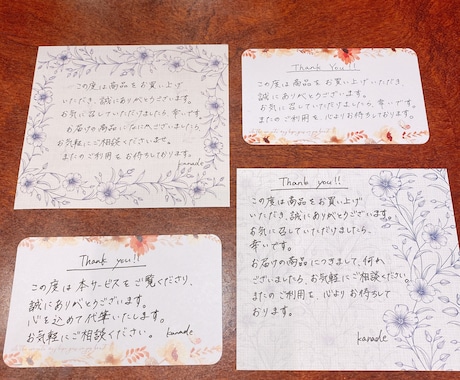 この度は商品をお買い上げ
いただき、誠にありがとうございます。
お気に召していただけましたら、幸いです。
お届の商品に
ましたら、
お気軽にご相談くださいませ。
またのご利用をお待ちしております。
kanade
Thank You!!
この度は商品をお買い上げいただき
誠にありがとうございます。
お気に召していただけましたら、幸いです。
またのご利用を、心よりお待ちしております。
Thank you!!
この度は本サービスをご覧くださり、
誠にありがとうございます。
心を込めて代筆いたします。
お気軽にご相談ください。 kanade
Thank you!!
この度は商品をお買い上げ
いただき、誠にありがとうございます。
お気に召していただけましたら、
幸いです。
お届の商品につきまして、何か
ございましたら、お気軽にご相談ください。
またのご利用を 心よりお待ちして
おります。
kanade